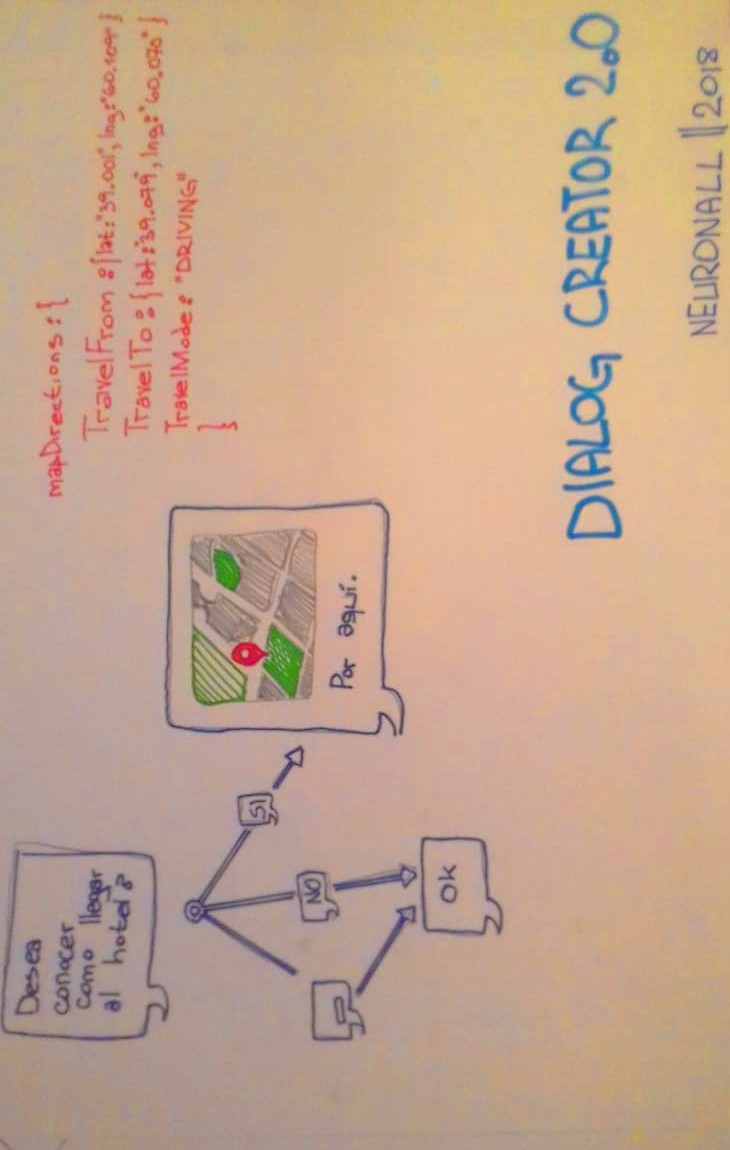 Desea
conocer
como llegar
al hotel?
SI
NO
Ok
Por aquí.
mapDirections : {
TravelFrom : {lat:"39.001", lng:"60.109" }
TravelTo : { lat:"39.079", lng:"60.070" }
TravelMode : "DRIVING"
}
DIALOG CREATOR 2.0
NEURONALL || 2018